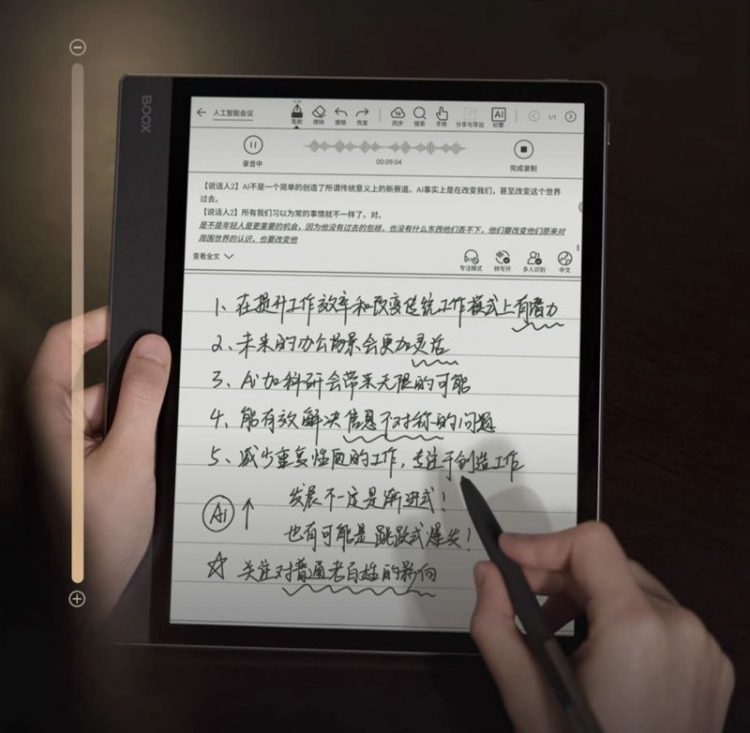 BOOX
人工智能会议
笔刷 擦除 撤销 恢复 同步 搜索 手势 分享与导出 AI 纪要 1/1
录音中 00:09:04 完成录制
【说话人2】AI不是一个简单的创造了所谓传统意义上的新赛道。AI事实上是在改变我们，甚至改变这个世界
过去。
【说话人2】所有我们习以为常的事情就不一样了。对。
是不是年轻人是更重要的机会，因为他没有过去的包袱，也没有什么东西他们丢不下，他们要改变他们原来对
周围世界的认识，也要改变他
查看全文 专注模式 转写开 多人识别 中文
1、在提升工作效率和改变传统工作模式上有潜力
2、未来的办公场景会更加灵活
3、Ai加科研会带来无限的可能
4、能有效解决信息不对称的问题
5、减少重复性质的工作，专注于创造工作
Ai ↑ 发展不一定是渐进式！
也有可能是跳跃式爆发！
☆ 关注对普通老百姓的影响